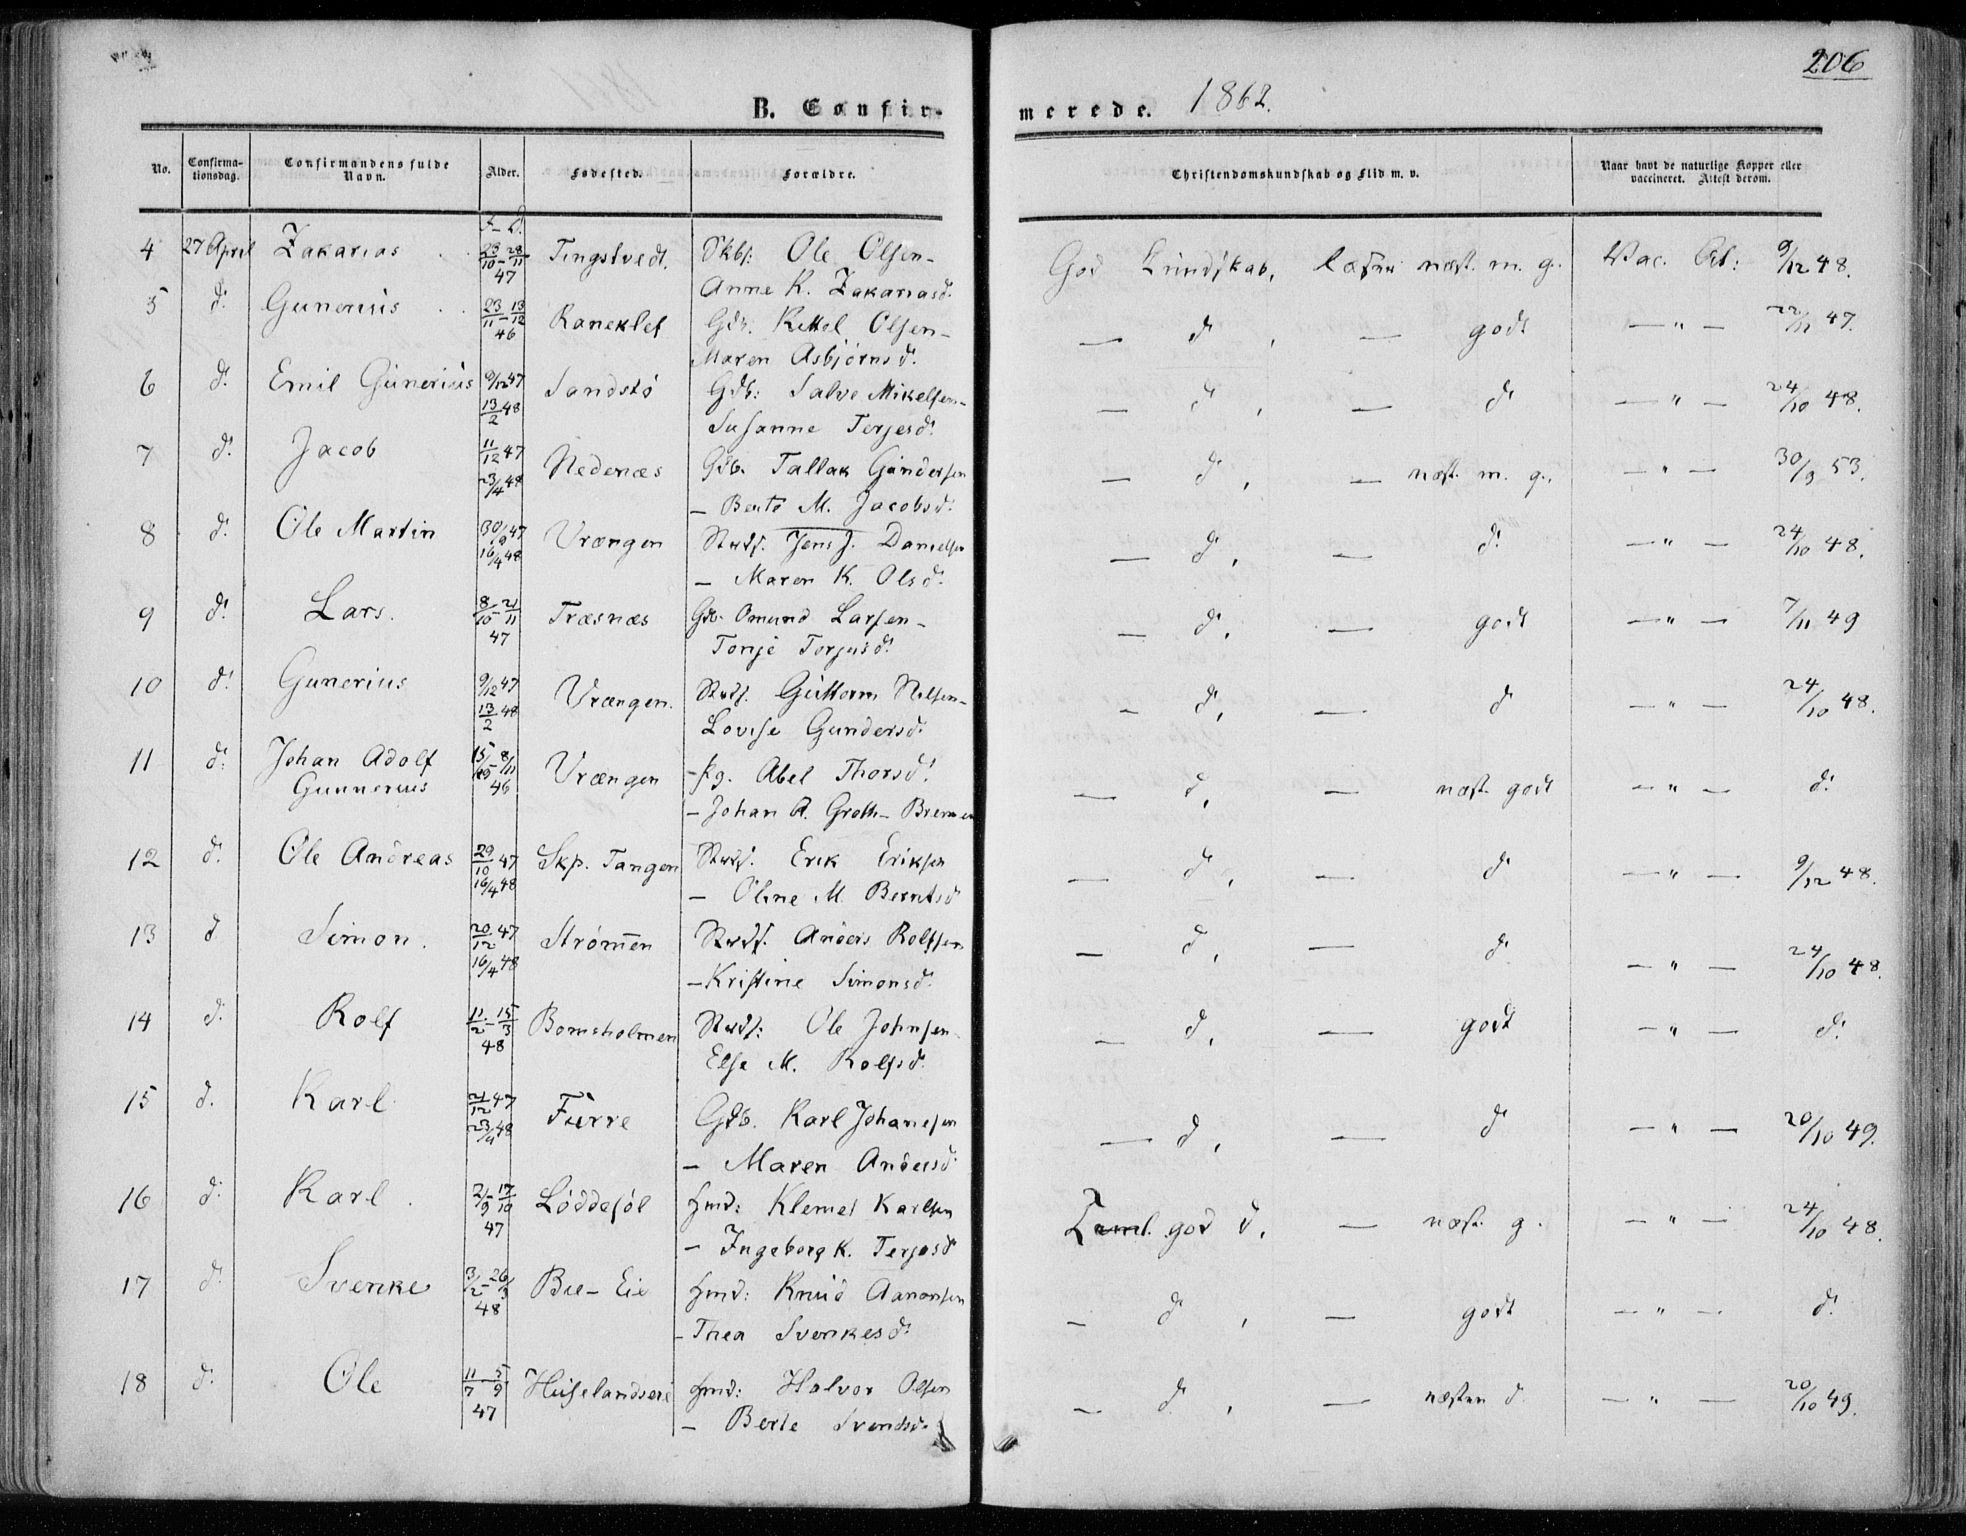 206
B. Confir-
merede. 1862.
No.
Confirma-
tionsdag.
Confirmandens fulde
Navn.
Alder.
Fødested.
Forældre.
Christendomskundskab og Flid m. v.
Naar havt de naturlige Kopper eller
vaccineret. Attest derom.
F - D.
4 27 April Zakarias 23/10 - 28/11 Tingstvedt. Skbf: Ole Olsen - God Kundskab, læser næst. m. g. Vac. At: 9/12 48.
47 Anne K. Zakariasd.
5 d. Gunerius 23/11 - 13/12 Raneklef Gdb. Kittel Olsen - — d, — godt — " — 22/11 47.
46 Maren Asbjørnsd.
6 d. Emil Gunerius 9/12 47 Sandstø Gdb: Salve Mikelsen - — d, — d — " — 24/10 48.
13/2 48 Susanne Terjesd.
7 d. Jacob 11/12 47 Nedenæs Gdb. Tallak Gundersen — d, — næst. m. g. — " — 30/9 53.
23/4 48 - Berte M. Jacobsd.
8 d. Ole Martin 30/9 47 Vrængen Strdf. Jens J. Danielsen — d, — d. — " — 24/10 48.
16/4 48 - Maren K. Olsd.
9 d. Lars. 8/10 - 21/11 Træsnæs Gdb. Omund Larsen - — d, — godt — " — 7/11 49
47 Tonje Torjusd.
10 d. Gunerius 9/12 47 Vrængen. Strdf. Guttorm Nilsen - — d, — d — " — 24/10 48.
13/2 48 Lovise Gundersd.
11 d. Johan Adolf 15/10 - 8/11 Vrængen - Pg. Abel Thorsd. — d, — næst. godt — " — d.
Gunnerius 46 - Johan A. Groth - Bremen
12 d. Ole Andreas 29/10 47 Skp. Tangen Strdf. Erik Eriksen — d, — d — " — 9/12 48.
16/4 48 - Oline M. Berntsd
13 d Simon. 20/12 47 Strømmen Strdf. Anders Rolfsen — d, — d. — " — 24/10 48.
16/4 48 - Kristine Simonsd.
14 d. Rolf 11/2 - 15/3 Bomsholmen Strdf: Ole Johnsen - — d, — godt — " — d.
48 Else M. Rolfsd.
15 d. Karl 21/12 47 Furre Gdb. Karl Johanesen — d, — d — " — 20/10 49.
23/4 48 - Maren Andersd.
16 d. Karl. 2/9 - 17/10 Løddesøl Hmd: Klemet Karlsen Teml. god d, — næst. g. — " — 24/10 48.
47 - Ingeborg K. Terjesd
17 d. Svenke 3/2 - 26/3 Bie - Eie Hmd: Knud Aanonsen — d, — godt — " — d.
48 - Thea Svenkesd.
18 d. Ole 11/7 - 5/9 Huselandseie Hmd: Halvor Olsen — d, — næsten d. — " — 20/10 49.
47 - Berte Svendsd.